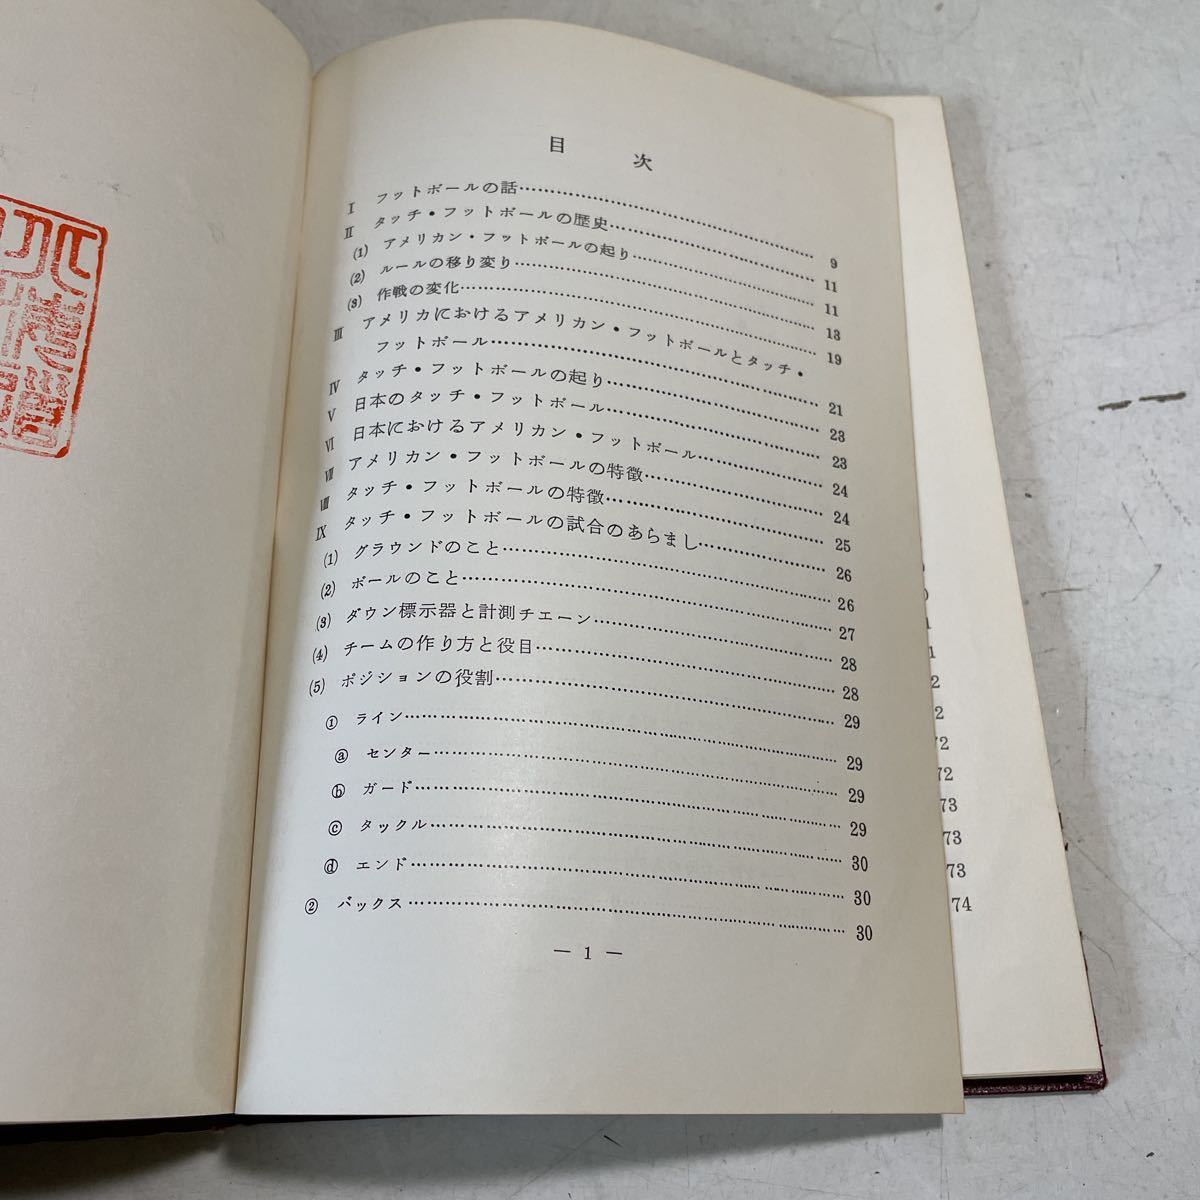 目　次
Ⅰ フットボールの話…………9
Ⅱ タッチ・フットボールの歴史…………11
(1) アメリカン・フットボールの起り…………11
(2) ルールの移り変り…………13
(3) 作戦の変化…………19
Ⅲ アメリカにおけるアメリカン・フットボールとタッチ・
フットボール…………21
Ⅳ タッチ・フットボールの起り…………23
Ⅴ 日本のタッチ・フットボール…………23
Ⅵ 日本におけるアメリカン・フットボール…………24
Ⅶ アメリカン・フットボールの特徴…………24
Ⅷ タッチ・フットボールの特徴…………25
Ⅸ タッチ・フットボールの試合のあらまし…………26
(1) グラウンドのこと…………26
(2) ボールのこと…………27
(3) ダウン標示器と計測チエーン…………28
(4) チームの作り方と役目…………28
(5) ポジションの役割…………29
① ライン…………29
ⓐ センター…………29
ⓑ ガード…………29
ⓒ タックル…………30
ⓓ エンド…………30
② バックス…………30
— 1 —
72
72
73
73
73
74